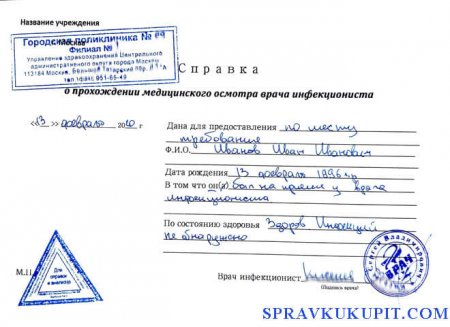 Название учреждения
Городская поликлиника № 69
Филиал №
Управление здравоохранения Центрального
административного округа города Москвы
113184 Москва, Большой Татарский
тел 951-65-49
Справка
о прохождении медицинского осмотра врача инфекциониста
«13» февраля 20 г.
Дана для предоставления по месту
требования
Ф.И.О. Иванов Иван Иванович
Дата рождения 13 февраля 1996 г.р
В том что он(а) был на приеме у врача
инфекциониста
По состоянию здоровья Здоров Инфекций
не обнаружено
Для
справок
и анализов
М.П.
Сергей Владимирович
ВРАЧ
Врач инфекционист
(Подпись врача)
SPRAVKUKUPIT.COM